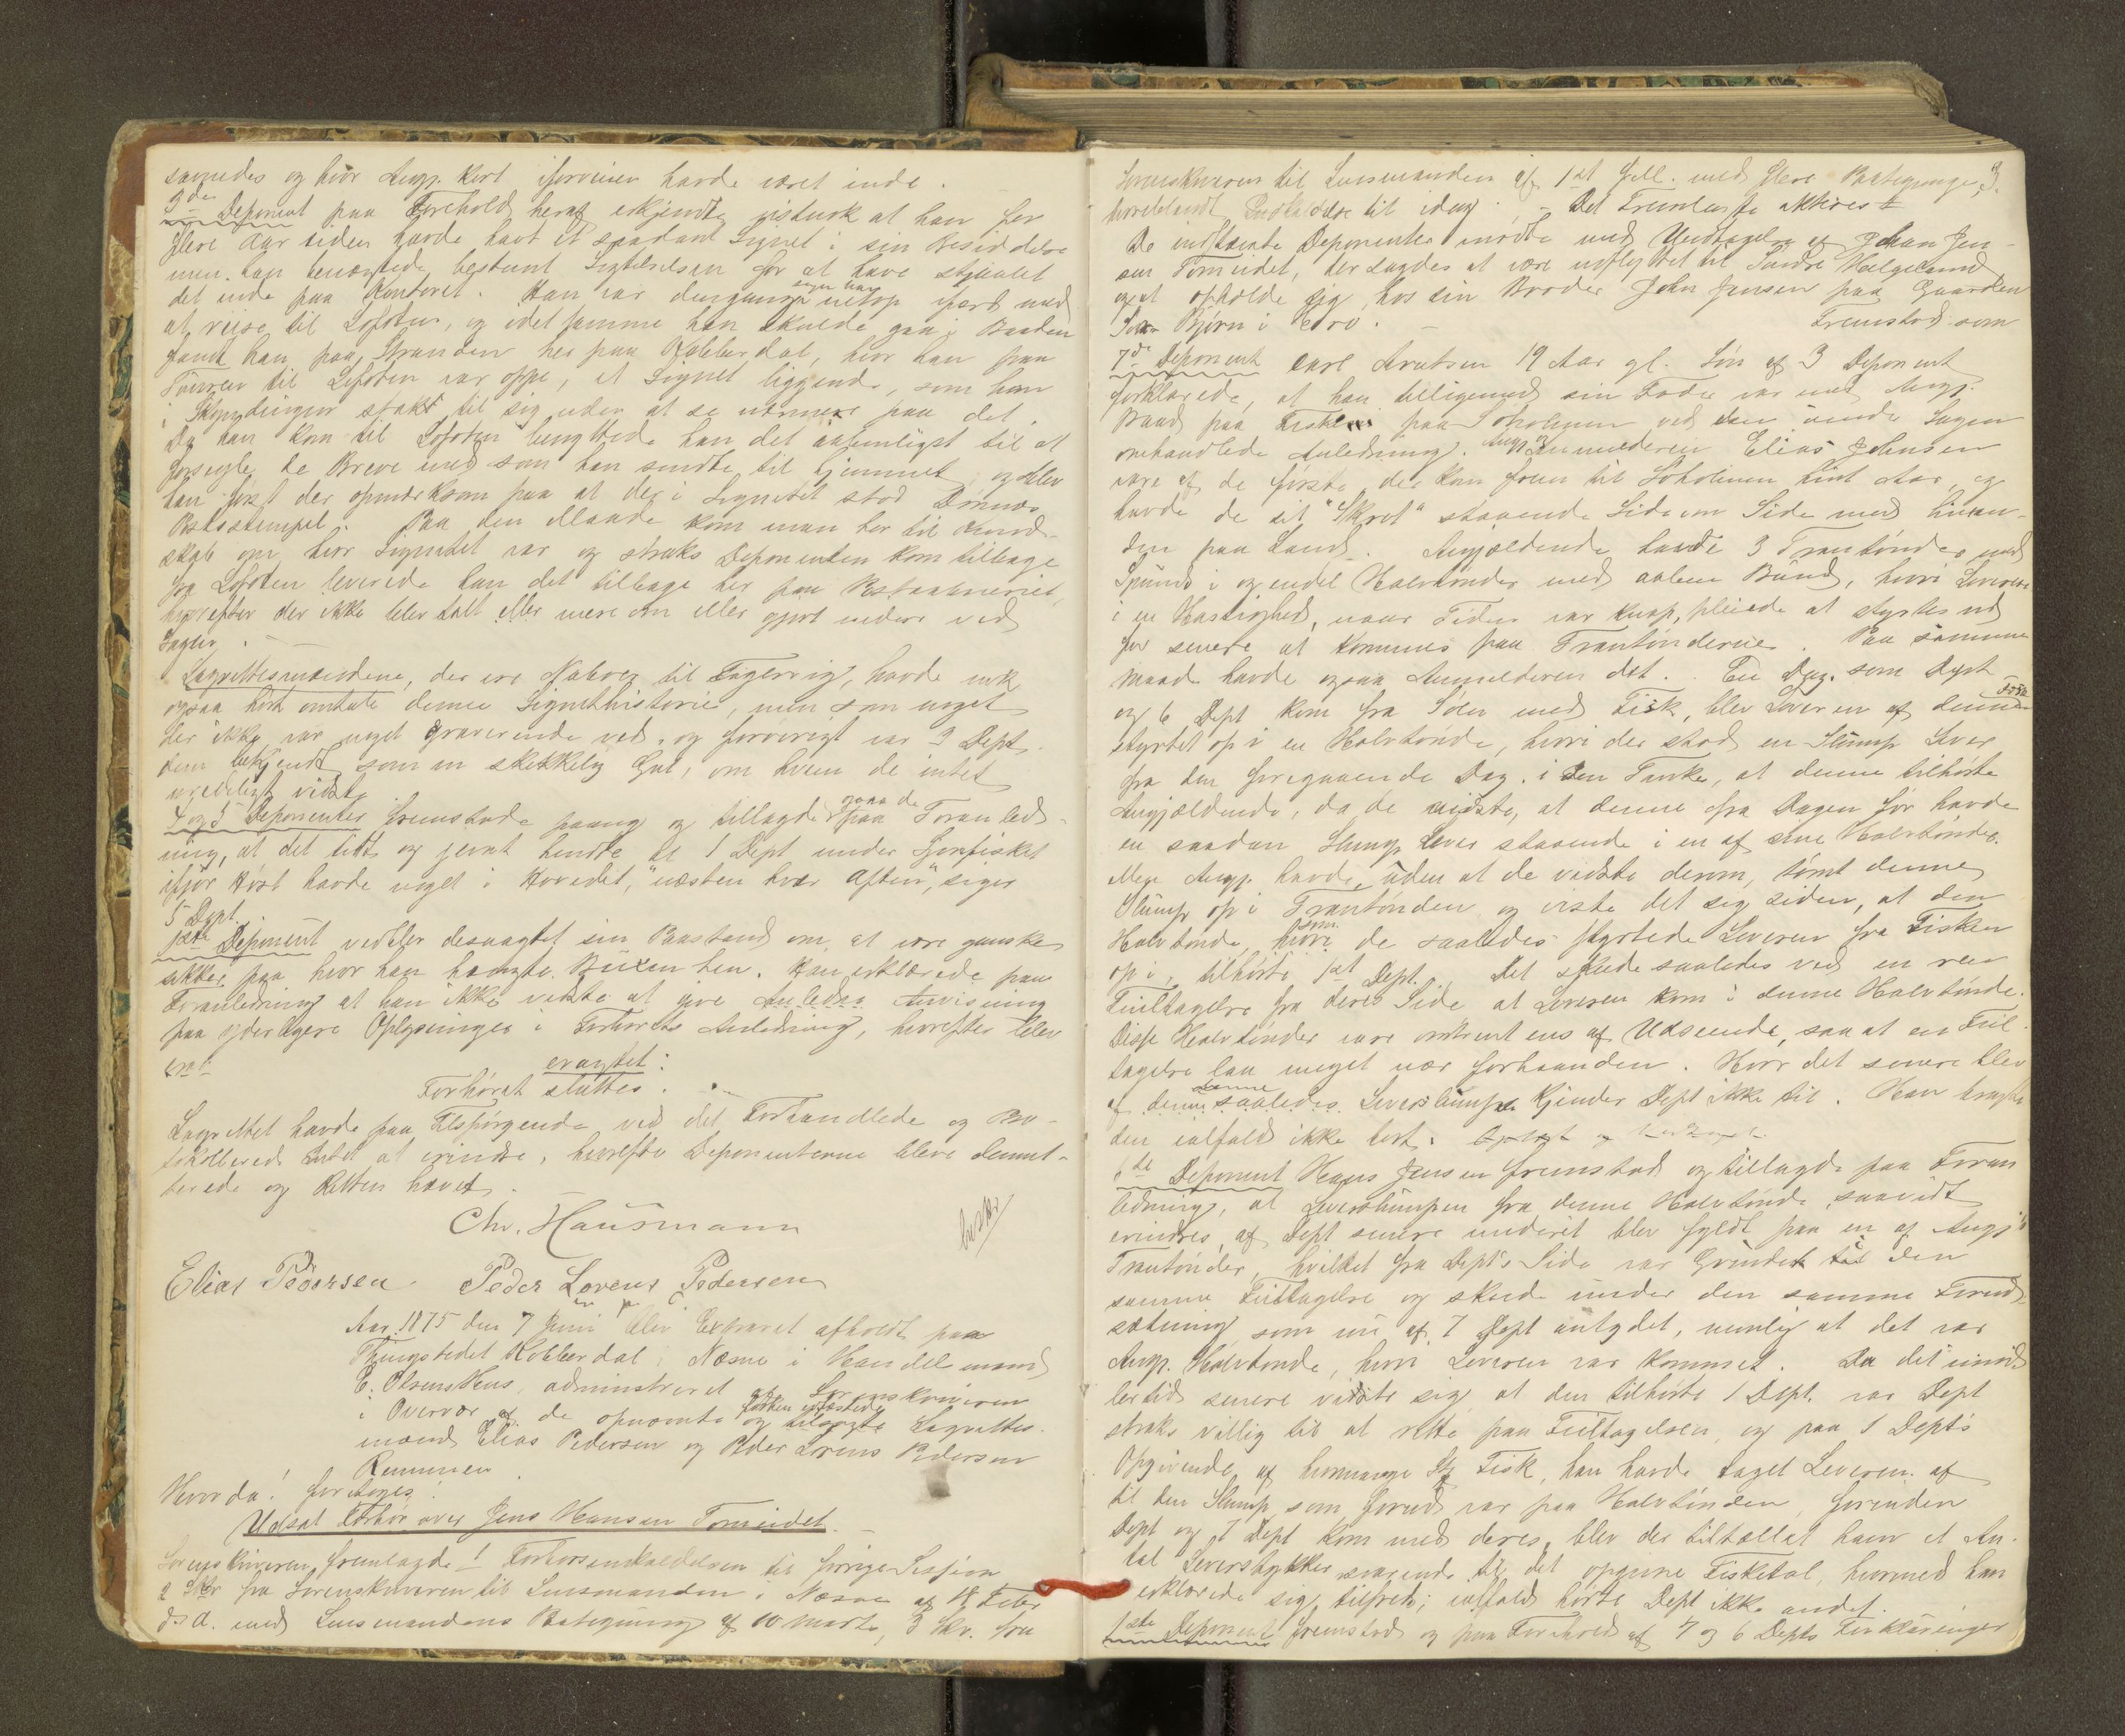 samedes og hvor Angj. kort iforveien havde været inde.
3de Deponent paa Forehold heraf erkjendte justnok at han for
flere Aar siden havde havt et saadant Signet i sin Besiddelse
men han benægtede bestemt Sigtelsen for at have stjaalet
det inde paa Kontoret. Han var dengang siger han netop ifærd med
at reise til Lofoten, og idet samme han skulde gaa i Baaden
fandt han paa Stranden her paa Kobberdal, hvor han paa
Touren til Lofoten var oppe, et Signet liggende, som han
i Skyndingen stak til sig uden at se nærmere paa det.
Da han kom til Lofoten benyttede han det aabenlyst til at
forsegle de Breve med som han sendte til Hjemmet, og blev
han først der opmærksom paa at der i Signetet stod Dønnæs
Poststempel. Paa den Maade kom man her til Kund-
skab om hvor Signetet var og straks Deponenten kom tilbage
fra Lofoten leverede han det tilbage her paa Postaabneriet,
hvorefter der ikke blev talt eller mere om eller gjort videre ved
Sagen.
Lagrettesmændene, der ere Naboer til Fagervig, havde nok
ogsaa hørt omtale denne Signethistorie, men som noget
der ikke var noget graverende ved, og forøvrigt var 3 Dept.
dem bekjendt som en skikkelig Gut, om hvem de intet
uredeligt vidste.
4 og 5 Deponenter fremstode paany og tillagde ogsaa de paa Foranled-
ning, at det tidt og jevnt hendte at 1 Dept under Garnfisket
ifjor Høst havde noget i Hovedet, "næsten hver Aften", siger
5 Dept.
1ste Deponent vedblev desuagtet sin Paastand om at være ganske
sikker paa hvor han hængte Buxen hen. Han erklærede paa
Foranledning at han ikke vidste at give Anledn. Anvisning
paa yderligere Oplysninger i Forhørets Anledning, hvorefter blev
eragtet:
Forhøret sluttes.
Lagrettet havde paa Tilspørgende ved det Forhandlede og Pro-
tokollerede Intet at erindre, hvorefter Deponenterne bleve demit-
terede og Retten hævet.
Chr. Hausmann
Elias Pedersen Peder Lorens Pedersen
Aar 1875 den 7 Juni blev Extraret afholdt paa
Thingstedet Kobberdal i Næsne i Handelsmand
E. Olsens Hus, administreret af Sorenskriveren
i Overvær af de opnævnte og tilsagte Lagrettes-
mænd Elias Pedersen og Peder Lorens Pedersen
Remmen.
Hvorda! foretoges:
Udsat Forhør over Jens Hansen Tomeidet.
Sorenskriveren fremlagde 1 Forhørsindkaldelsen til forrige Session
2 Skr. fra Sorenskriveren til Lensmanden i Næsne af 18 Febr
d. A. med Lensmandens Paategning af 10 Marts, 3 Skr. fra
Sorenskriveren til Lensmanden af 1st med flere Paategninger,
hvoriblandt Indkaldelse til idag. - Det Fremlagte akteres
De indstævnte Deponenter mødte med Undtagelse af Johan Jen-
sen Tomeidet, der sagdes at være udflyttet til Søndre Helgeland
og at opholde sig hos sin Broder John Jensen paa Gaarden
Bjørn i Fremstod som
7de Deponent Carl Arntsen 19 Aar gl. Søn af 3 Deponent
forklarede, at han tilligemed sin Fader var med Angj.
Baad paa Fiskeri paa Sørholmen ved den under Sagen
omhandlede Anledning. Angj. og Anmelderen Elias Johnsen
vare af de første der kom frem til Sørholmen hint Aar, og
havde de sit "Skrot" staaende Side om Side med hinan-
den paa Land. Angjældende havde 3 Trantønder med
Spunds i og endel Halvtønder med aaben Bund, hvori Leveren
i en Hastighed, naar Tiden var knap, pleiede at styrtes ned
for senere at kommes paa Trantønderne. Paa samme
Maade havde ogsaa Anmelderen det. En Dag, som Dept
og 6 Dept kom fra Søen med Fisk, blev Leveren af denne
styrtet op i en Halvtønde, hvori der stod en Slump Lever
fra den foregaaende Dag, i den Tanke, at denne tilhørte
Angjældende, da de vidste, at denne fra Dagen før havde
en saadan Slump Lever staaende i en af sine Halvtønder.
Men Angj. havde, uden at de vidste derom, tømt denne
Slump op i Trantønden og viste det sig siden, at den
Halvtønde som de saaledes styrtede Leveren fra Fisken
op i, tilhørte 1st Dept. Det skede saaledes ved en ren
Feiltagelse fra deres Side at Leveren kom i denne Halvtønde.
Disse Halvtønder vare omtrent ens af Udseende, saa at en Feil-
tagelse laa meget nær forhaanden. Hvor det senere blev
af denne Leverslump kjender Dept ikke til. Han bragte
den ialfald ikke bort.
6te Deponent Hans Jensen fremstod og tillagde paa Foran-
ledning, at Leverslumpen fra denne Halvtønde saavidt
erindres af Dept senere underet blev fyldt paa en af Angj's
Trantønder, hvilket fra Dept's Side var Grundet i den
samme Feiltagelse og skede under den samme Forud-
sætning som nu af 7 Dept antydet, nemlig at det var
Angj. Halvtønde, hvori Leveren var kommet. Da det imid-
lertid senere viste sig at den tilhørte 1 Dept. var Dept
straks villig til at rette paa Feiltagelsen, og paa 1 Dept's
Opgivende af hvormange Stk Fisk, han havde taget Leveren af
til den Slump, som forud var paa Halvtønden, forinden
Dept og 7 Dept kom med deres, blev der tiltællet ham et An-
tal Leverstykker svarende til det opgivne Fisketal, hvormed han
erklærede sig tilfreds; ialfald hørte Dept ikke andet.
1ste Deponent fremstod og paa Forehold af 7 og 6 Depts Forklaringer